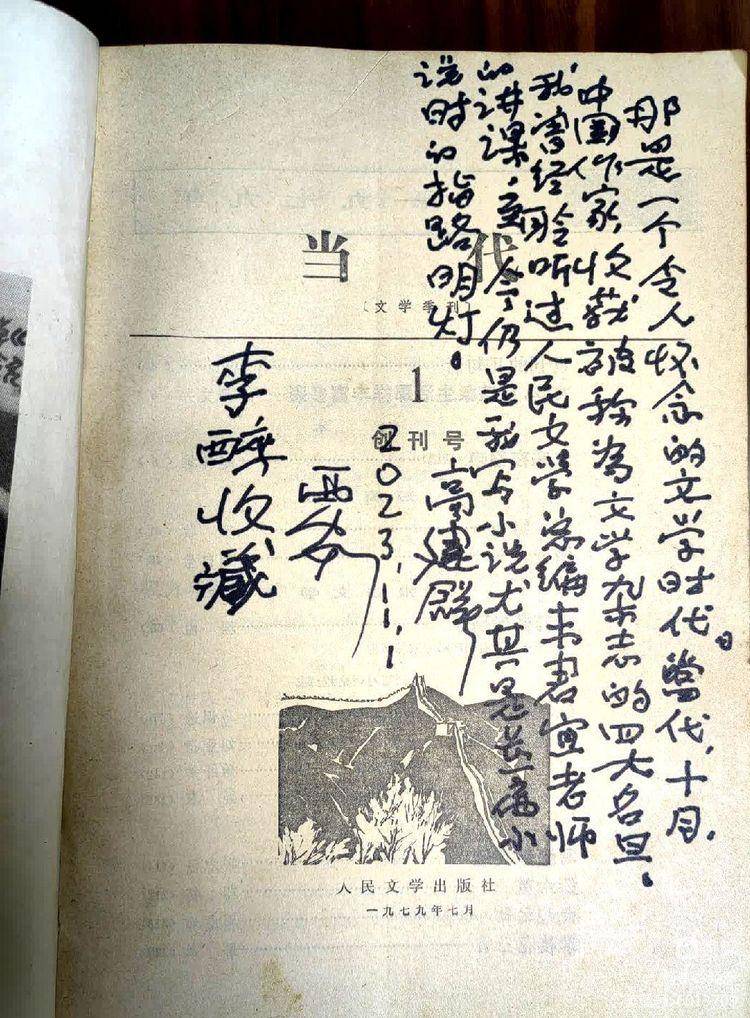 那是一个令人怀念的文学时代。當代,十月,
中国作家,收获被称为文学杂志的四大名旦。
我曾经聆听过人民文学总编韦君宜老师
的讲课,至今仍是我写小说尤其是长篇小
说时的指路明灯。
高建群
2023.11.1
西安
李醉收藏
当代
〔文学季刊〕
1
创刊号
人民文学出版社
一九七九年七月